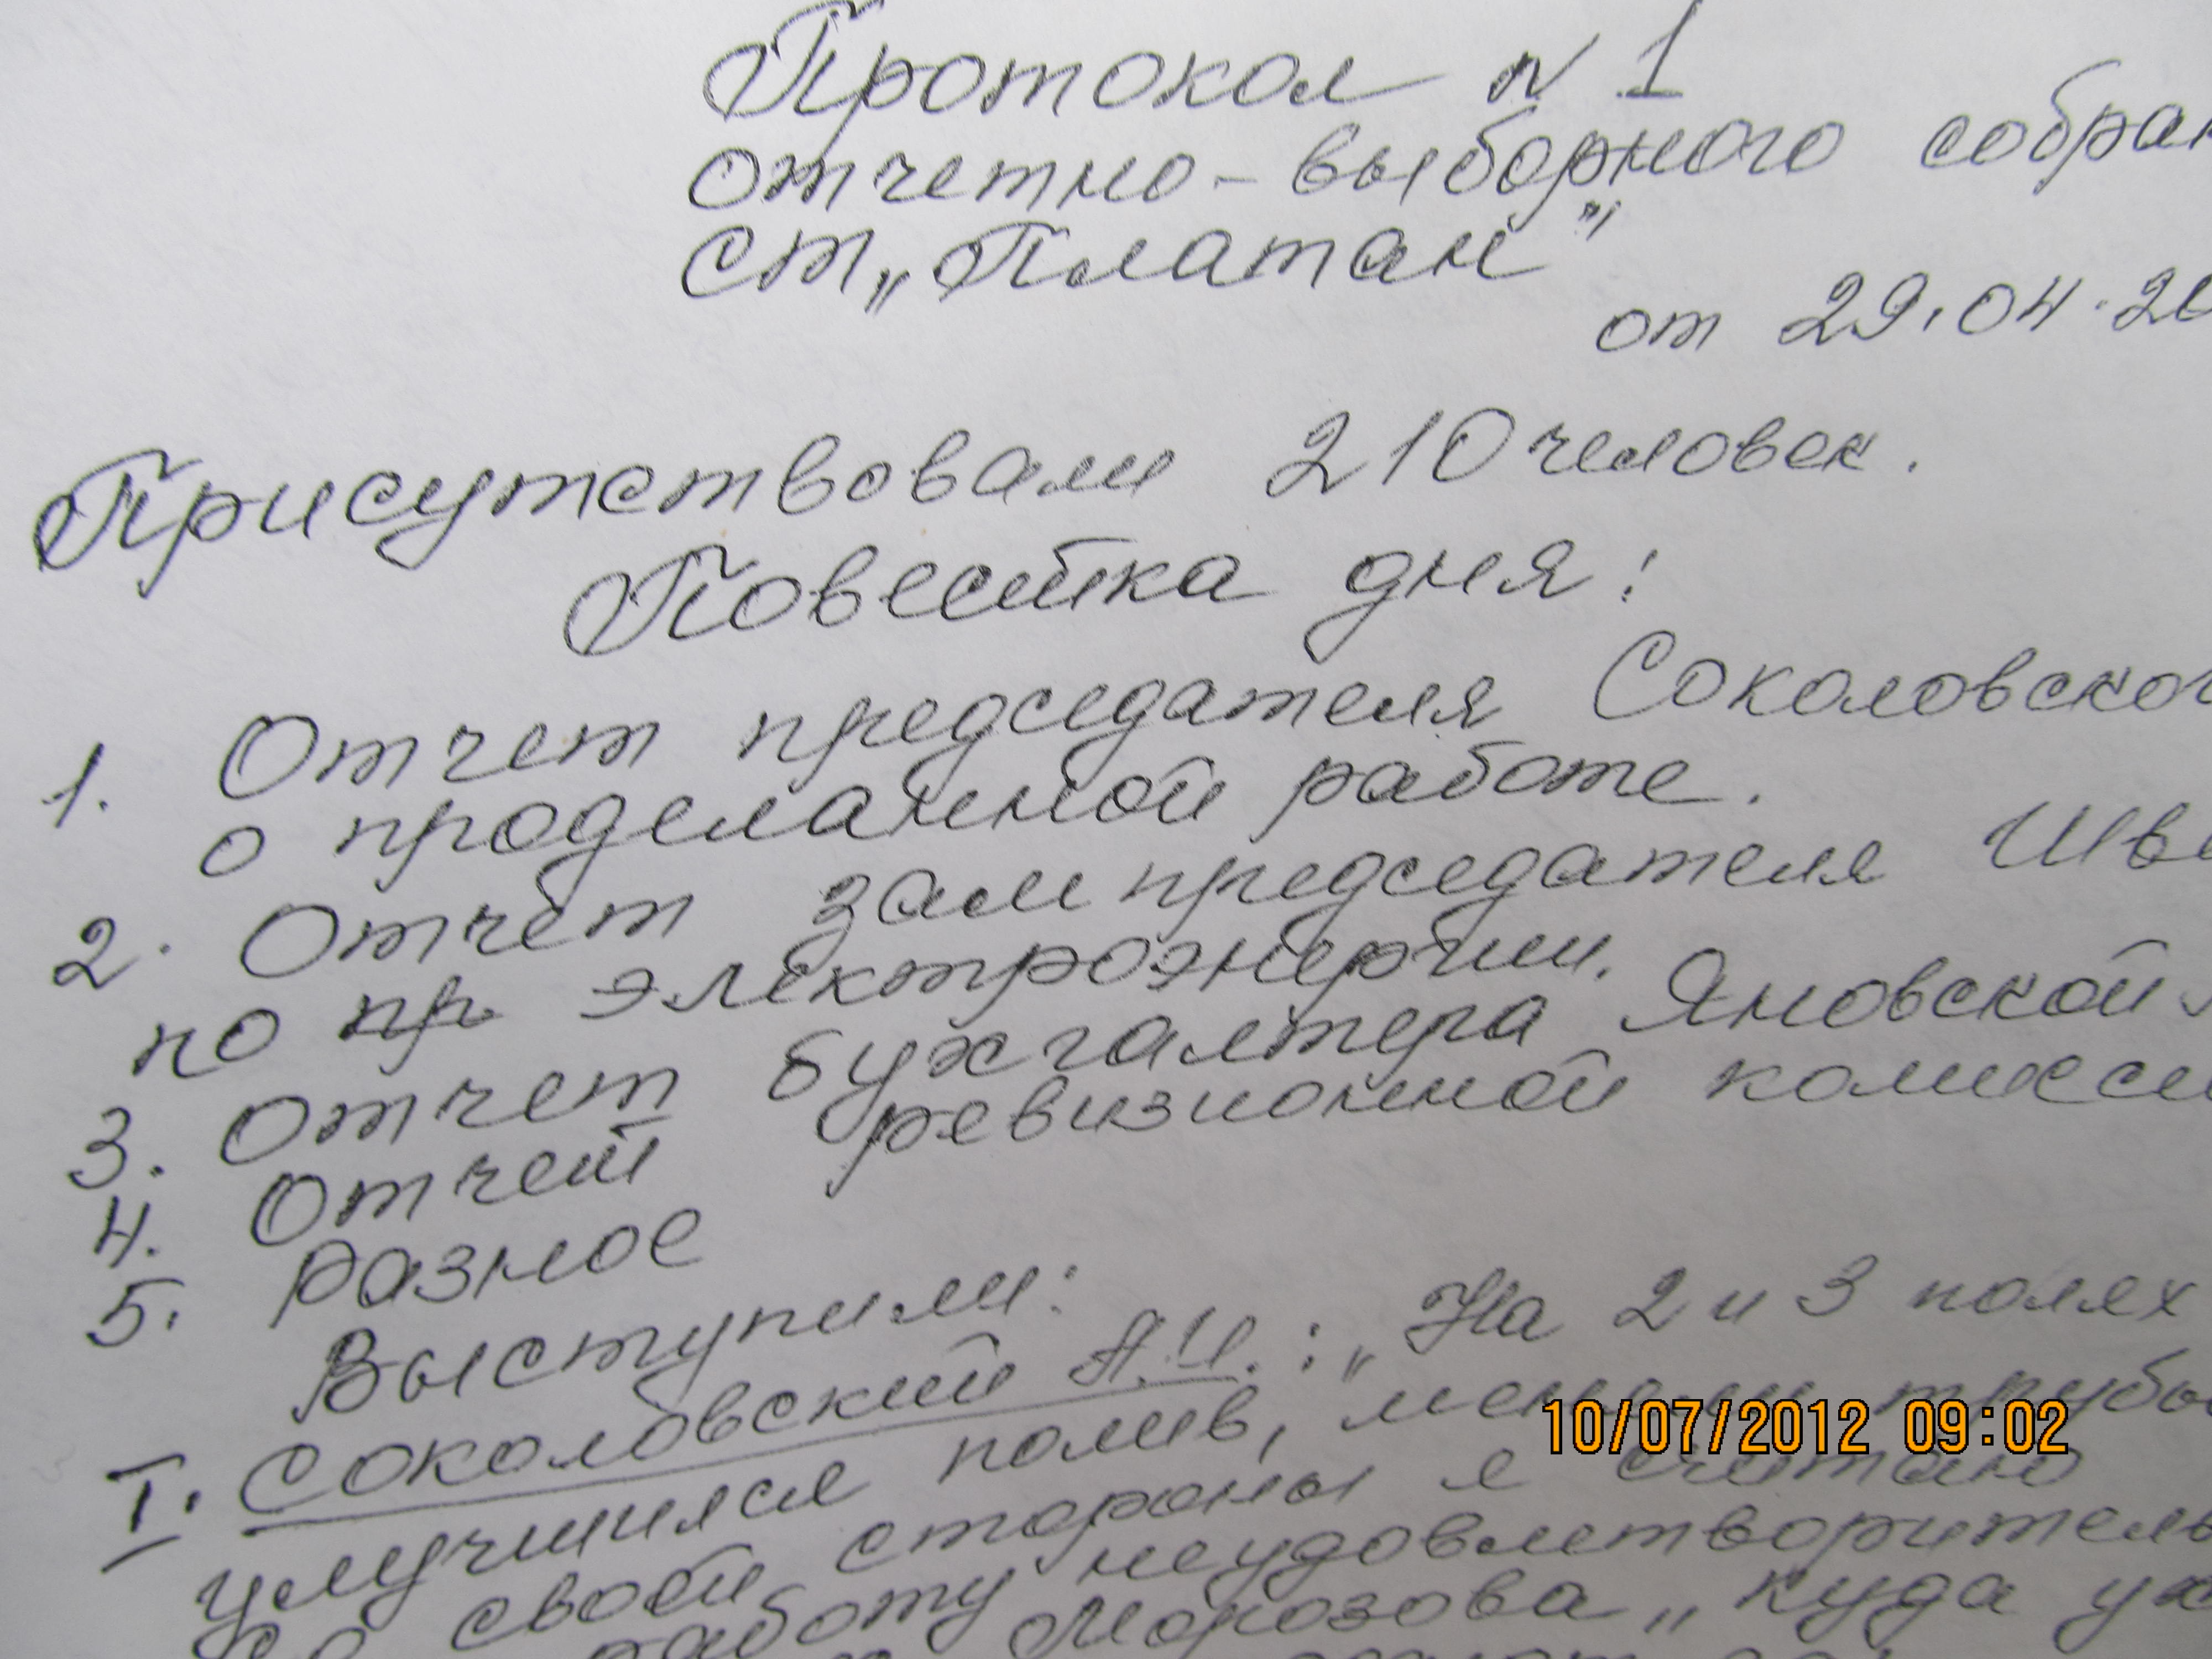 Протокол N 1
отчетно-выборного собран
ст „Платан”
от 29.04.20
Присутствовали 210 человек.
Повестка дня:
1. Отчет председателя Соколовског
о проделанной работе.
2. Отчет зам председателя Шве
по пр электроэнергии.
3. Отчет бухгалтера Яновской
4. Отчет ревизионной комисси
5. Разное
Выступили:
I. Соколовский А.И.: „На 2 и 3 полях
улучшился полив, меняли трубы
Со своей стороны я считаю
работу неудовлетворитель
Морозова „куда ух
10/07/2012 09:02